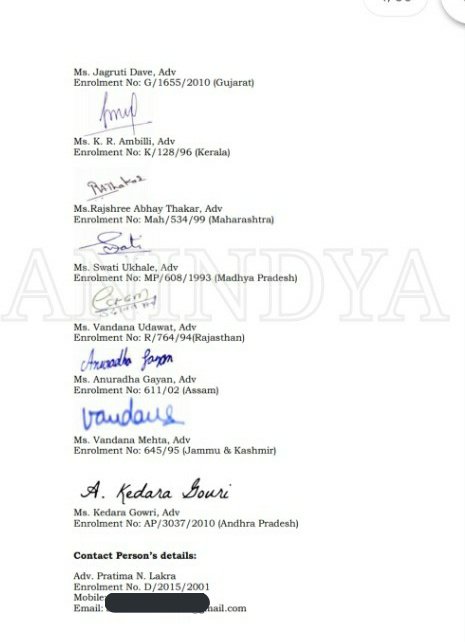 Ms. Jagruti Dave, Adv
Enrolment No: G/1655/2010 (Gujarat)
Ms. K. R. Ambilli, Adv
Enrolment No: K/128/96 (Kerala)
RAThakar
Ms.Rajshree Abhay Thakar, Adv
Enrolment No: Mah/534/99 (Maharashtra)
Swati
Ms. Swati Ukhale, Adv
Enrolment No: MP/608/1993 (Madhya Pradesh)
ANINDYA
Ms. Vandana Udawat, Adv
Enrolment No: R/764/94(Rajasthan)
Anuradha Gayan
Ms. Anuradha Gayan, Adv
Enrolment No: 611/02 (Assam)
Vandana
Ms. Vandana Mehta, Adv
Enrolment No: 645/95 (Jammu & Kashmir)
A. Kedara Gowri
Ms. Kedara Gowri, Adv
Enrolment No: AP/3037/2010 (Andhra Pradesh)
Contact Person's details:
Adv. Pratima N. Lakra
Enrolment No. D/2015/2001
Mobile:
Email: mail.com